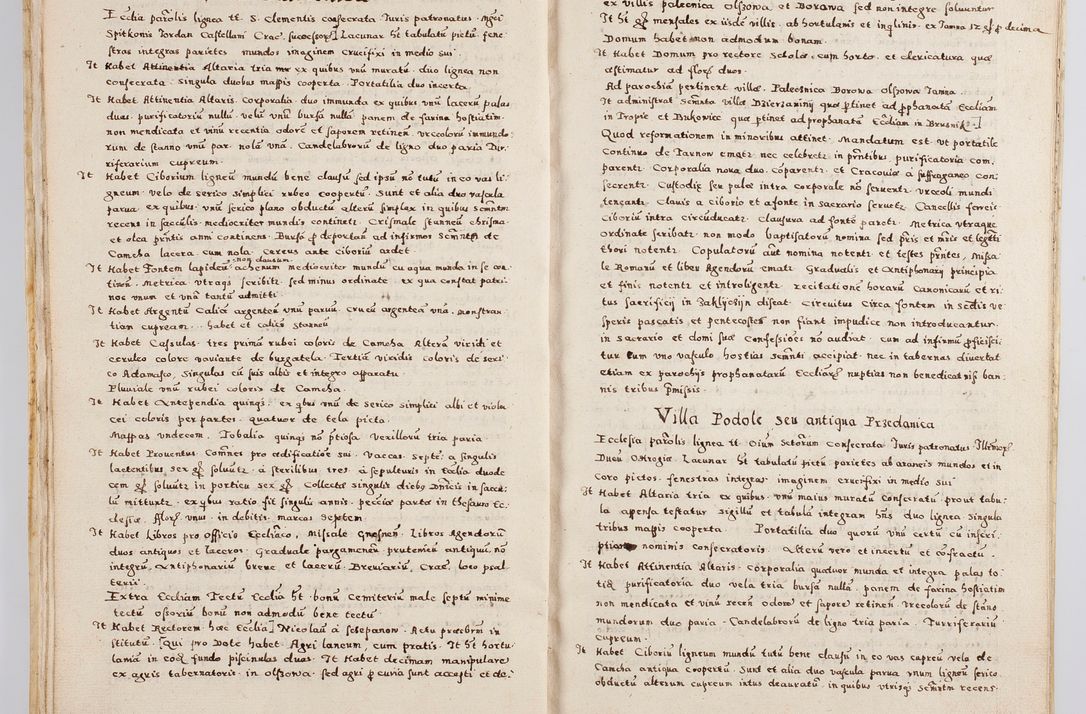 Ecclia parolis lignea tt. S. Clementis consecrata Iuris patronatus Mgci
Spitkonis Iordan Castellani Crac: successorum Lacunar ht tabulatū pictū fene
stras integras parietes mundos imaginem Crucifixi in medio sui
It Habet Altaria tria ex quibus vnū muratū duo lignea non
consecrata singula duobus mappis cooperta. Portatilia duo incerta.
It Habet Attinentia Altaris. Corporalia duo immunda ex quibus vnū lacerū palas
duas purificatoriū nullū velū vnū bursā nullā panem de farina hostiatim
non mendicata et vinū recentia odorē et saporem retinen. vrceolorū immundo
rum de stanno vnū par nolā vnā. Candelabrorū de ligno duo paria Tur
riferarium cupreum.
It Habet Ciborium ligneū mundū bene clausū sed ipsū nō tutū in eo vas li
gneum velo de serico simplici rubeo coopertū. Sunt et alia duo vascula
parua ex quibus vnū serico plano obductū alterū simplex in quibus Scmntm
recens in faeculis mediocriter mundis continetr. Crismale stanneū chrisma
et olea prntis anni continens. Bursā p deportan ad infirmos Scmntm de
Camcha lacera cum nola. Cereus ante Ciboriū ardet
It Habet Fontem lapideū non clausum achenum mediocriter mundū cu aqua munda in se con
tinen. Metrica vtraq scribitr sed minus ordinate ex qua constat patri
nos vnum et vnā tantū admitti
It Habet Argentū Calicē argenteū vnū paruū. Crucē argenteā vnā. monstran
tiam cupream habet et calicē stanneū
It Habet Casulas tres primā rubei coloris de Camcha Alterā viridi et
ceruleo colore variante de burgatela. Tertiā viridis coloris de seri
co Adamasco, singulas cū suis albis et integro apparatu
Pluuiale vnū rubei coloris de Camcha.
It Habet Antependia quinq: ex qbus vnū de serico simplici albi et viola
cei coloris per partes quatuor de tela picta.
Mappas vndecem. Tobalia quinq nō ptiosa Vexillorū tria paria
It Habet Prouentus Comnes pro aedificatioē sui. Vaccas. Septē a singulis
lactentibus sex solūūtr a sterilibus tres a sepulturis in Ecclia duode
cem solūūtr in porticu sex. Collecta singulis diebs Dnicis in saccu
lū mittuntr ex qbus ratio fit singulis annis peccūia parta in thesauro Ec
clesiae. Flor: vnus in debitis marcas Septem.
It Habet Libros pro officio Eccliaco, Missale Gnesnen. Libros Agendorū
duos antiquos et laceros. Graduale pargameneū prutenicū antiquū nō
integrū, Antiphonariū breue et lacerū. Breuiariū, Crac. loco psal
terii
Extra Eccliam Tectū Eccliā ht bonū Cemiteriū male septū minime
tectū ossoriū bonū non admodū bene tectū.
It Habet Rectorem haec Ecclia Nicolaū a Scsepanow. Actu praebrm in
stitutū Qui pro Dote habet Agri laneum, cum pratis. It ht hortu
laniā in eoq fundo piscinulas duas. It Habet decimam manipularē
ex agris tabernatoris in Olszowa. sed agri p curia sunt accepti et de

ex villis paleśnica Olszowa et Borowa sed non integre soluuntur
It ht mensales ex iisdē villis ab hortulanis et inqlinis ex Jamna decima
Domum habet non admodum bonam.
It Habet Domum pro rectore Scholae cum horto et clericatura quae
aestimatur ad flor: duos.
Ad parochiā pertinent villae Paleśnica Borowa Olszowa Jamna.
It administrat Scmnta villae Dzierżaniny quae ptinet ad pphanatā Eccliam
in Tropie et Bukowiec quae ptinet ad prophanatā Eccliam in Brusnik
Quod reformationem in minoribus attinet. Mandatum est vt portatile
Continuo de Tarnow ematr nec celebretr in prntibus purificatoria com
parentr Corporalia noua duo coparentr et Cracouiae a suffraganeo con
secrentr Custodiae seu palae intra corporale nō seruentr vrceoli mundi
teneantr Clauis a ciborio et a fonte in sacrario seruetr Cancellis ferreis
Ciboriū intra circūducatr Clausura ad fontē paretr. Metrica vtraque
ordinate scribatr non modo baptisatorū nomina sed pris et mris et legiti
thori notentr. Copulatorū aūt nomina notentr et testes prntes, Missa
le Romanū et liber Agendorū ematr. Gradualis et Antiphonarij principia
et finis notentr et introligentr recitationē horarū Canonicarū et ri
tus sacrificij in Zaklyczyn discat. Circuitus Circa fontem in Sedis ve
speris pascatis et pentecostes non fiant impudicē non introducantur
in sacrario et domi suae Confessiōes nō audiat cum ad infirmū pficisci
tur cum vno vasculo, hostias Scmnti accipiat nec in tabernas diuertat
etiam ex parochijs prophanatarū Eccliarū nuptias non benedicat nisi ban
nis tribus pmissis.
Villa Podole seu antiqua Przedanica
Ecclesia parolis lignea tt Oium Sctorum Consecrata Iuris patronatus Illmor
Ducū Ostrogiae. Lacunar ht tabulatū pictū, parietes ab araneis mundos et in
coro pictos. fenestras integras imaginem crucifixi in medio sui
It Habet Altaria tria ex quibus vnū maius muratū Consecratū prout tabu
la apensa testatur sigillū et tabulā integram hns duo lignea singula
tribus mappis cooperta. Portatilia duo quorū vnū certū cū inscri
ptione nominis consecratoris Alterū vero et incertū et cōfractū
It Habet Attinentia Altaris. Corporalia quatuor munda et integra palas to
tiq purificatoria duo vela tria bursā nullā panem de farina hostiatim
non mendicata et vinū recen odore et sapore retinen. Vrceolorū de stāno
mundorum duo paria. Candelaborū de ligno tria paria. Turriferariū
cupreum.
It Habet Ciboriū ligneum mundū tutū bene clausū in eo vas cupreū velo de
Camcha antiqua coopertū. Sunt et alia duo vascula parua vnum ligneū serico
obductū alterum cupreum intus deauratū, in quibus vtrisq Scmntm recens